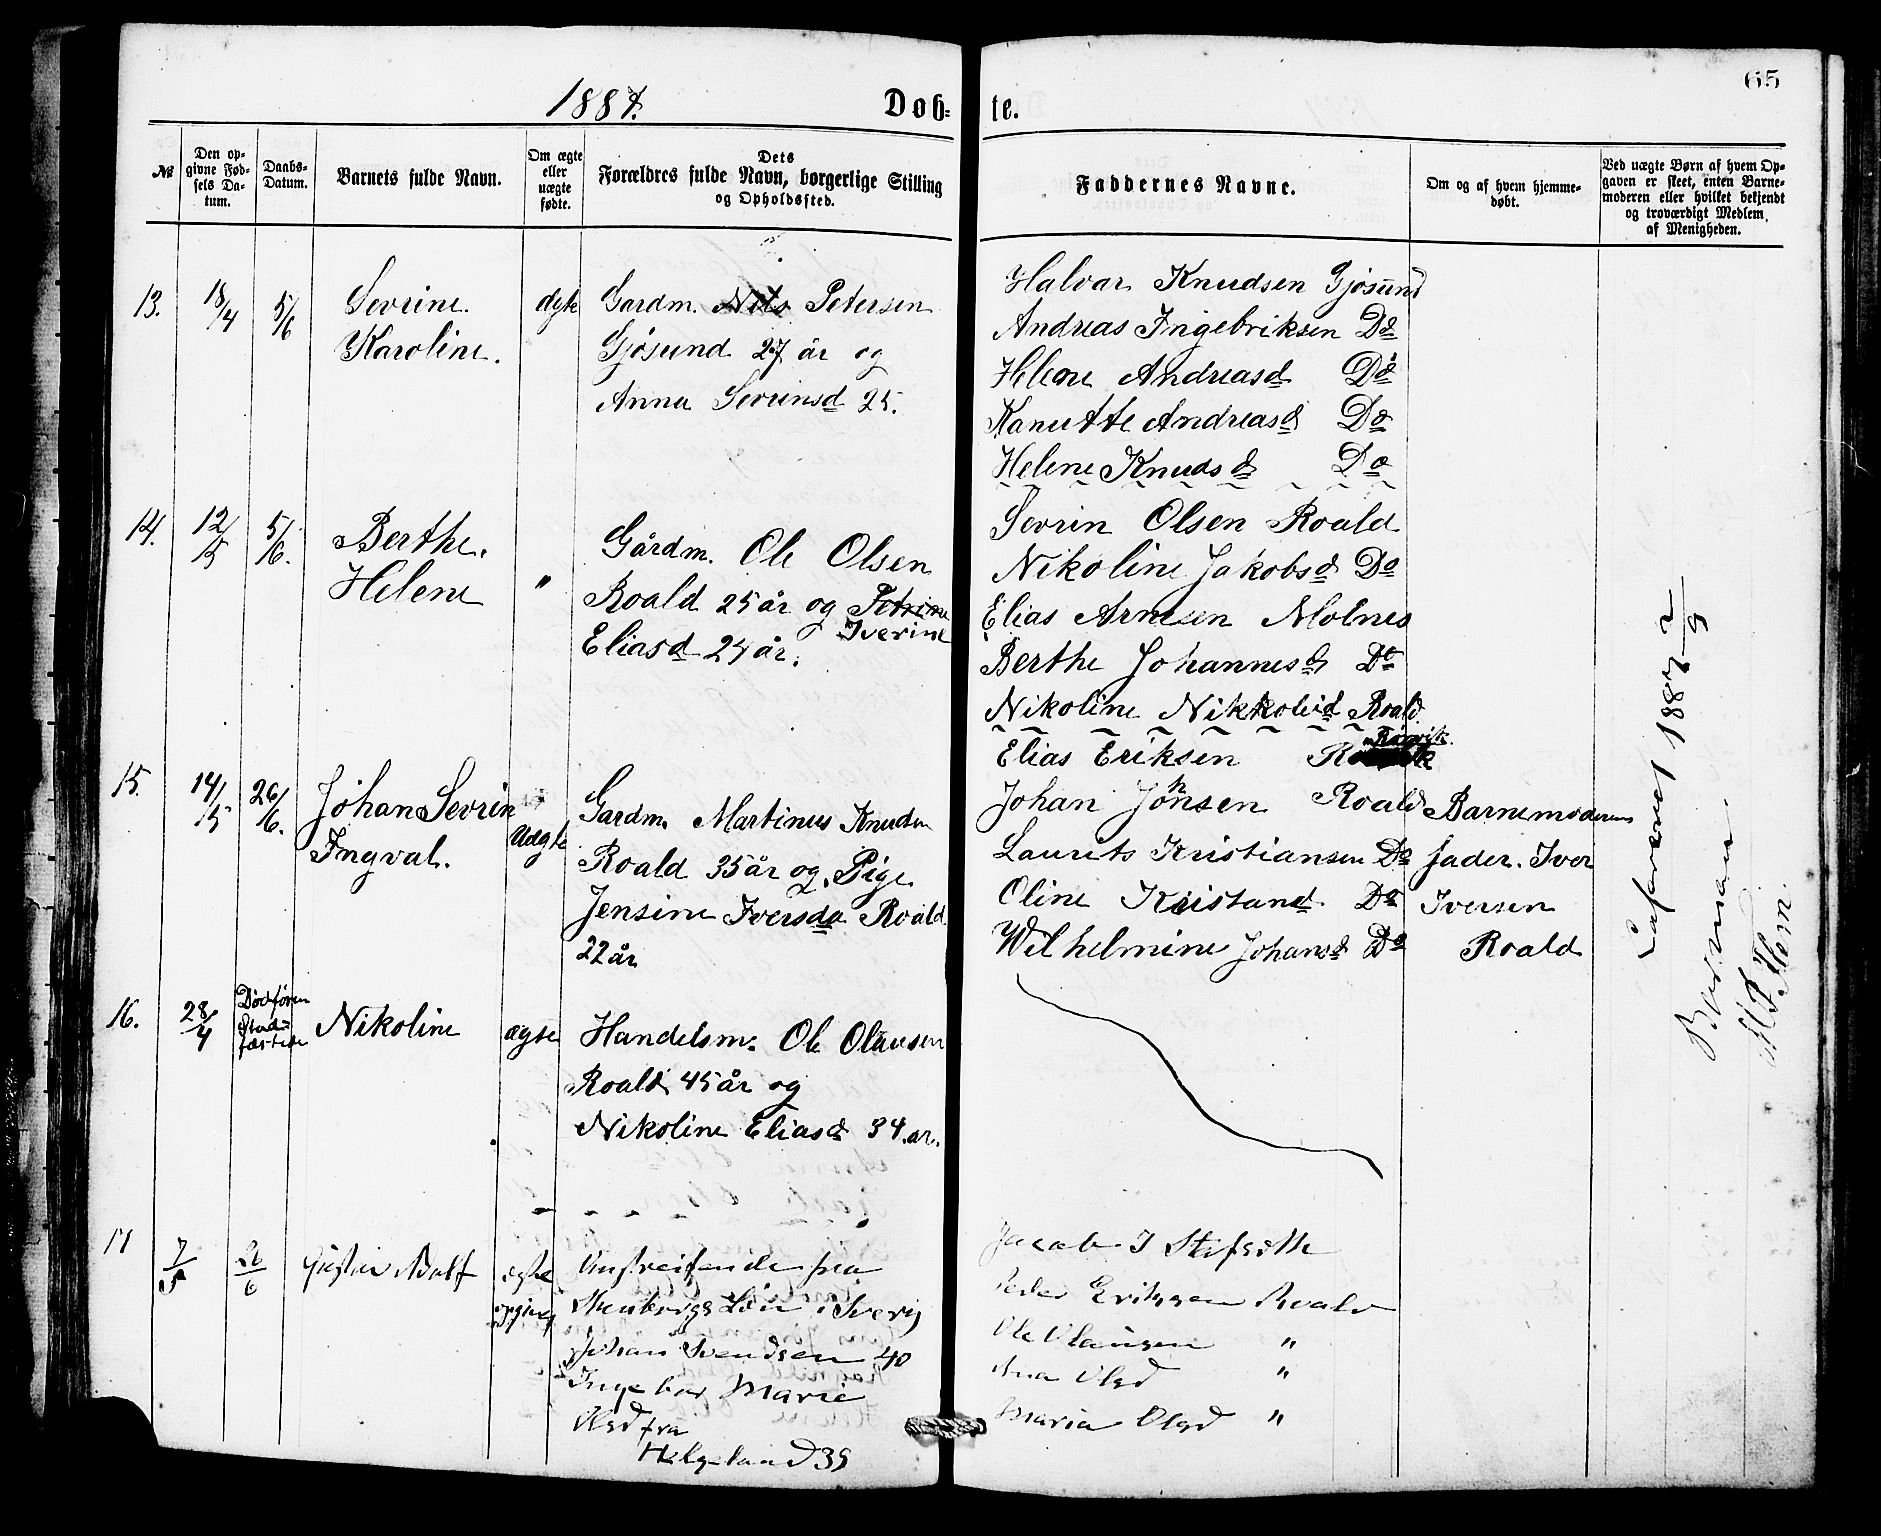 65
1887.
Døb- te.
№
Den op-
givne Fød-
sels Da-
tum.
Daabs-
Datum.
Barnets fulde Navn.
Om ægte
eller
uægte
fødte.
Dets
Forældres fulde Navn, borgerlige Stilling
og Opholdssted.
Faddernes Navne.
Om og af hvem hjemme-
døbt.
Ved uægte Børn af hvem Op-
gaven er skeet, enten Barne-
moderen eller hvilket bekjendt
og troværdigt Medlem
af Menigheden.
13.
18/4
5/6
Sevrine.
Karoline.
ægte
Gardm. Nils Petersen
Gjøsund 27 år og
Anna Sevrinsd 25.
Halvar Knudsen Gjøsund
Andreas Ingebriksen Do
Helene Andreasd Do
Kanutte Andreasd Do
Helene Knudsd Do
14.
12/5
5/6.
Berthe.
Helene
"
Gårdm. Ole Olsen
Roald 25 år og Petrine
Iverine
Eliasd 24 år.
Sevrin Olsen Roald
Nikoline Jakobsd Do
Elias Arnesen Molnes
Berthe Johannesd Do
Nikoline Nikkoleid Roald.
15.
14/5
26/6.
Johan Sevrin
Ingval.
Uægte
Gardm. Martinus Knudsen
Roald 35 år og Pige
Jensine Iversda Roald
22 år
Elias Eriksen
Rørvik.
Johan Johnsen Roald
Laurits Kristiansen Do
Oline Kristand. Do
Wilhelmine Johansd Do
Barnemoderens
fader. Iver
Iversen
Roald
16.
28/4
Dødføren
Stad-
fæstede
Nikoline
ægte
Handelsm. Ole Olausen
Roald 45 år og
Nikoline Eliasd 34. ar.
17
7/5
26/6
Gustav Adolf
ægte
opgivet
Omstreifende fra
Johan Svendsen 40
Ingebor Marie
Olsd fra
Helgeland 35
Jacob I
Peder Erikssen Roald
Ole Olausen "
Ana Olsd "
Maria Olsd "
1887 2/9